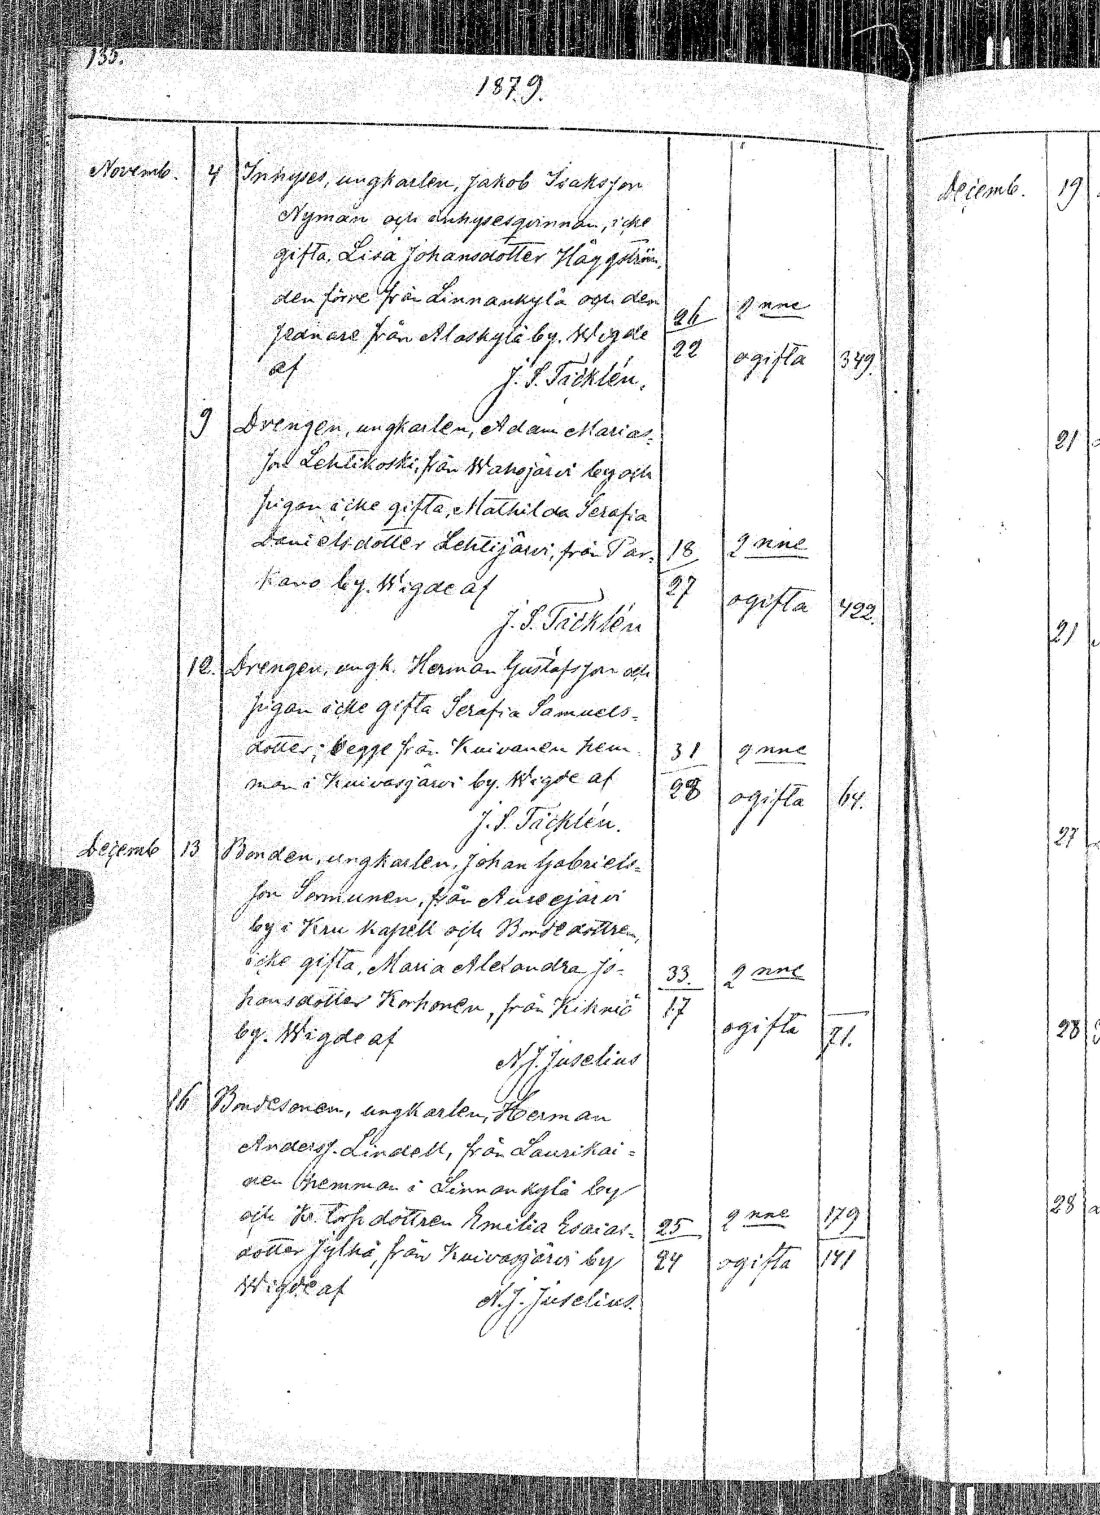 135.
1879.
Novemb. 4 Inhyses, ungkarlen, Jakob Isaksson
Nyman och inhysesqvinnan, icke
gifta, Lisa Johansdotter Häggström,
den förre från Linnankylä och den
sednare från Alaskylä by. Wigde
af J. S. Täcklén.
26
22
2 nne
ogifta 349.
9 Drengen, ungkarlen, Adam Marias-
son Lehtikoski, från Wahojärvi by och
pigan icke gifta, Mathilda Serafia
Danielsdotter Lehtijärvi, från Par-
kano by. Wigde af
J. S. Täcklén
18
27
2 nne
ogifta 422.
12. Drengen, ungk. Herman Gustafsson och
pigan icke gifta Serafia Samuels-
dotter; begge från Kuivanen hem-
man i Kuivasjärvi by. Wigde af
J. S. Täcklén.
31
28
2 nne
ogifta 64.
Decemb 13 Bonden, ungkarlen, Johan Gabriels-
son Sormunen, från Aureejärvi
by i Kuru kapell och Bondedottren,
icke gifta, Maria Alexandra Jo-
hansdotter Korhonen, från Kihniö
by. Wigde af
N. J. Juselius
33.
17
2 nne
ogifta 71.
16 Bondesonen, ungkarlen, Herman
Anderss. Lindell, från Laurikai-
nen hemman i Linnankylä by
och Kr. torp. dottren Emilia Esaias-
dotter Jylhä, från Kuivasjärvi by
Wigde af N. J. Juselius.
25
24
2 nne
ogifta
179
141
Decemb. 19
21
21
27
28
28